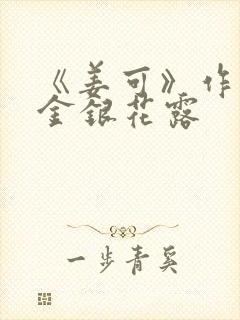 《姜可》作
金銀花露
一步青奚